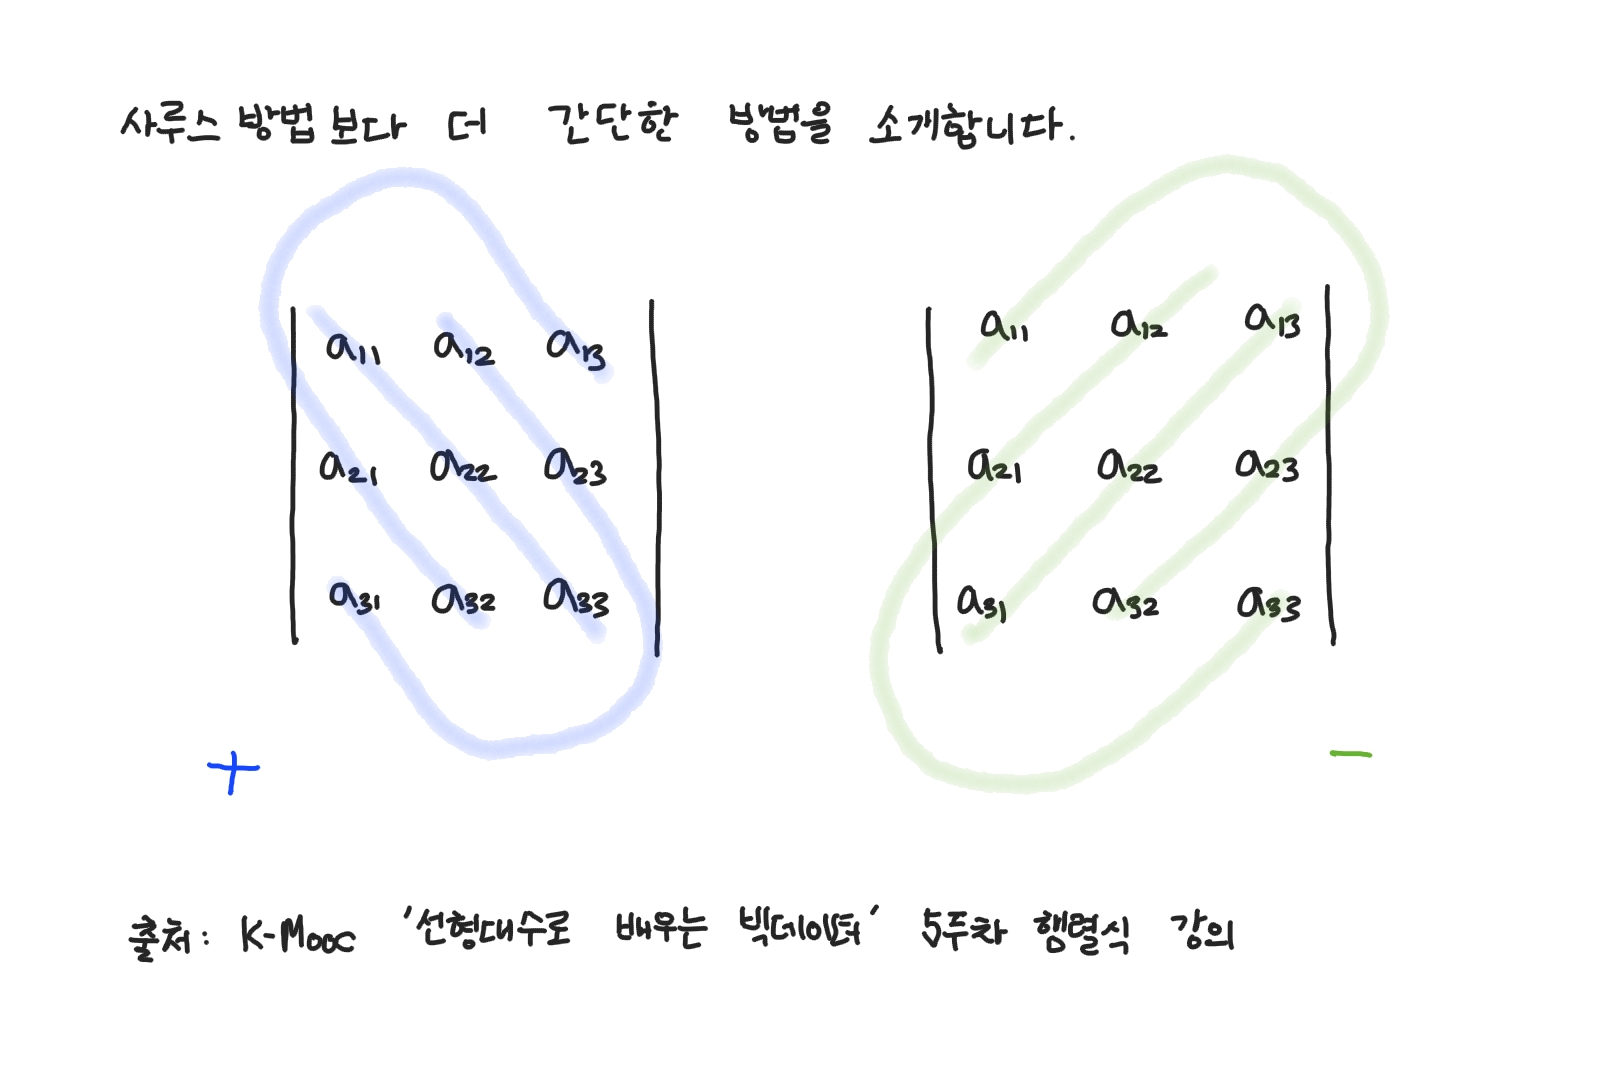 사루스 방법 보다 더 간단한 방법을 소개합니다.
a11 a12 a13 a11 a12 a13
a21 a22 a23 a21 a22 a23
a31 a32 a33 a31 a32 a33
+ −
출처: K-Mooc '선형대수로 배우는 빅데이터' 5주차 행렬식 강의